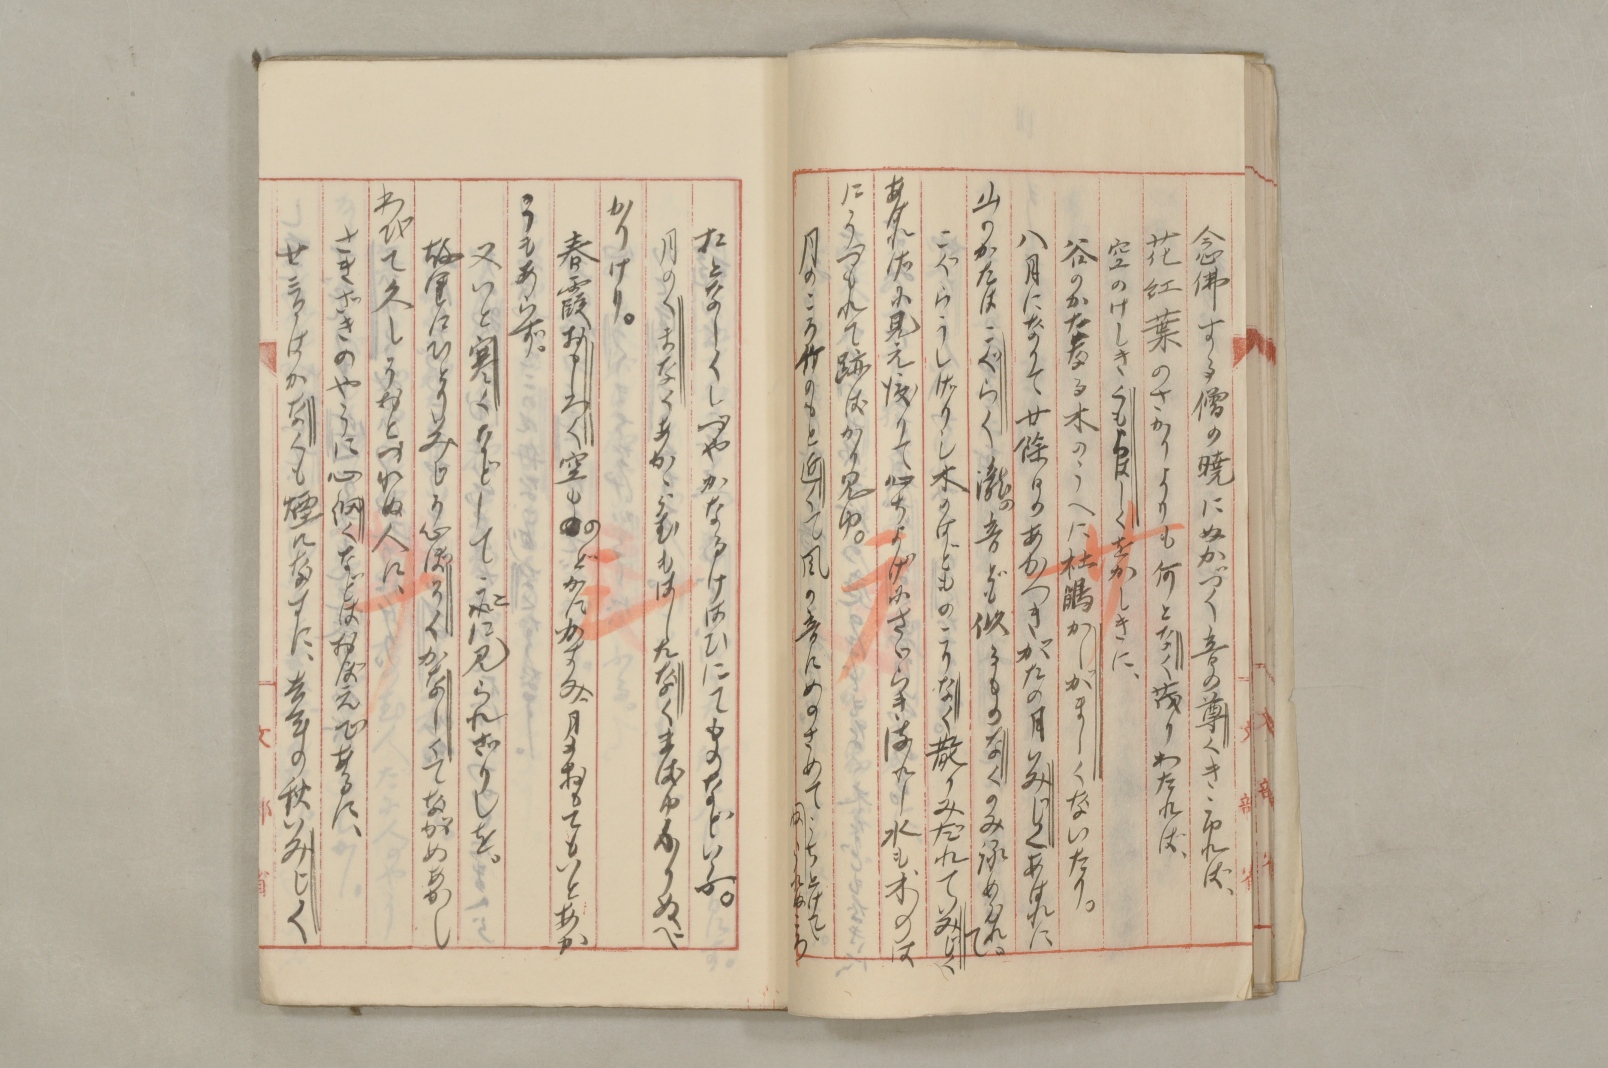 念佛する僧の暁にぬかづく音の尊くきこゆれば、
花紅葉のさかりよりも何となく茂りわたれば、
空のけしきくもらはしくをかしきに、
谷のかたなる木のうへに杜鵑かしがましくないたり。
八月になりて廿餘日のあかつきがたの月いみじくあはれに
山のかたはこぐらく瀧の音ども似るものなくのみ詠められて
こぐらうしげりし木のはどものこりなく散りみだれていみじく
あはれげに見え渡りて心ちよげにさゝらき流れし水も木のは
にうづもれて跡ばかり見ゆ。
月のころ竹のもと近くて風の音にめのさめてうちとけて
おとなしくしづやかなるけはひにてものなどいふ。
月のくまなくあかゝらむもはしたなくまばゆかりぬべ
かりけり。
春霞おもしろく空ものどかにかすみ月のおもてもいとあか
うもあらず。
又いと寒くなどしてことに見られざりしを。
故里にひとりいみじう心ぼそくかなしくてながめあかし
わびて久しうおとづれぬ人に、
さきざきのやうに心細くなどはおぼえであるに、
せ音はかなくも煙になすに、去年の秋いみじく
文部省